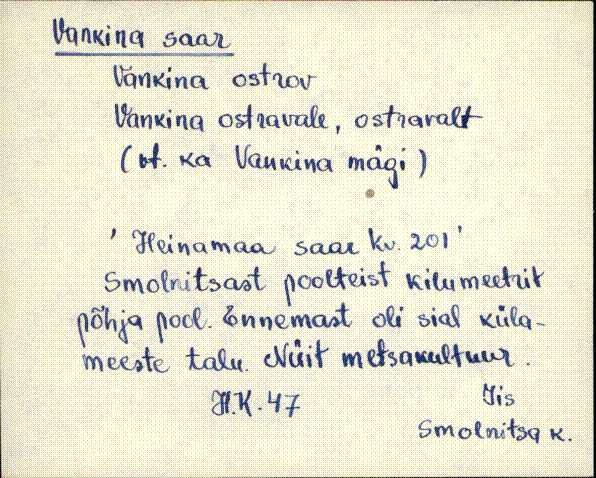 Vankina saar
Vankina ostrov
Vankina ostravale, ostravalt
(vt. ka Vankina mägi)
'Heinamaa saar kv. 201'
Smolnitsast poolteist kilumeetrit
põhja pool. Ennemast oli sial küla-
meeste talu. Nüit metsakultuur.
H.K. 47
Iis
Smolnitsa k.